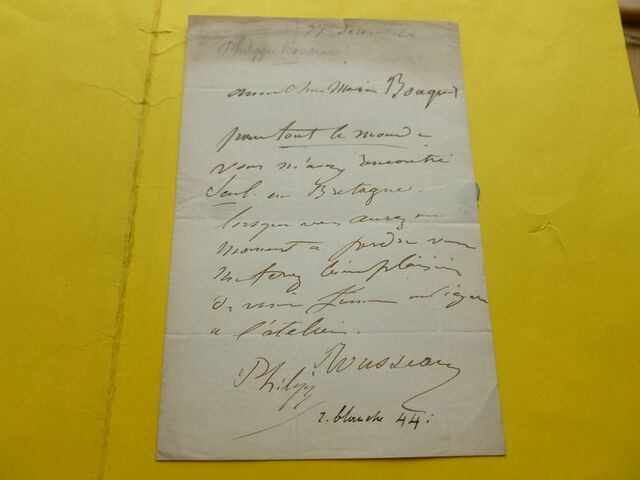 Philippe Rousseau
mon cher Monsieur Bouquet
pour tout le monde
vous m'avez rencontré
seul en Bretagne.
lorsque vous aurez un
moment a perdre vous
me ferez bien plaisir
de venir fumer un cigare
a l'atelier.
Philippe Rousseau
r. blanche 44